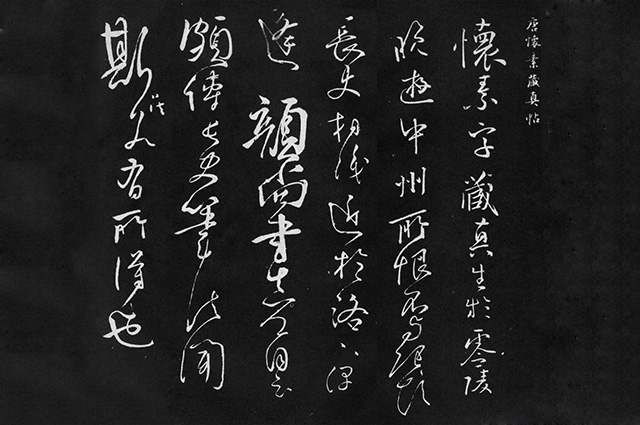 唐懷素藏真帖
懷素字藏真生於零陵
晚遊中州所恨不與張顛
長史相識近於洛下偶
逢顏尚書真卿自云
頗傳長史筆法聞
斯法若有所得也